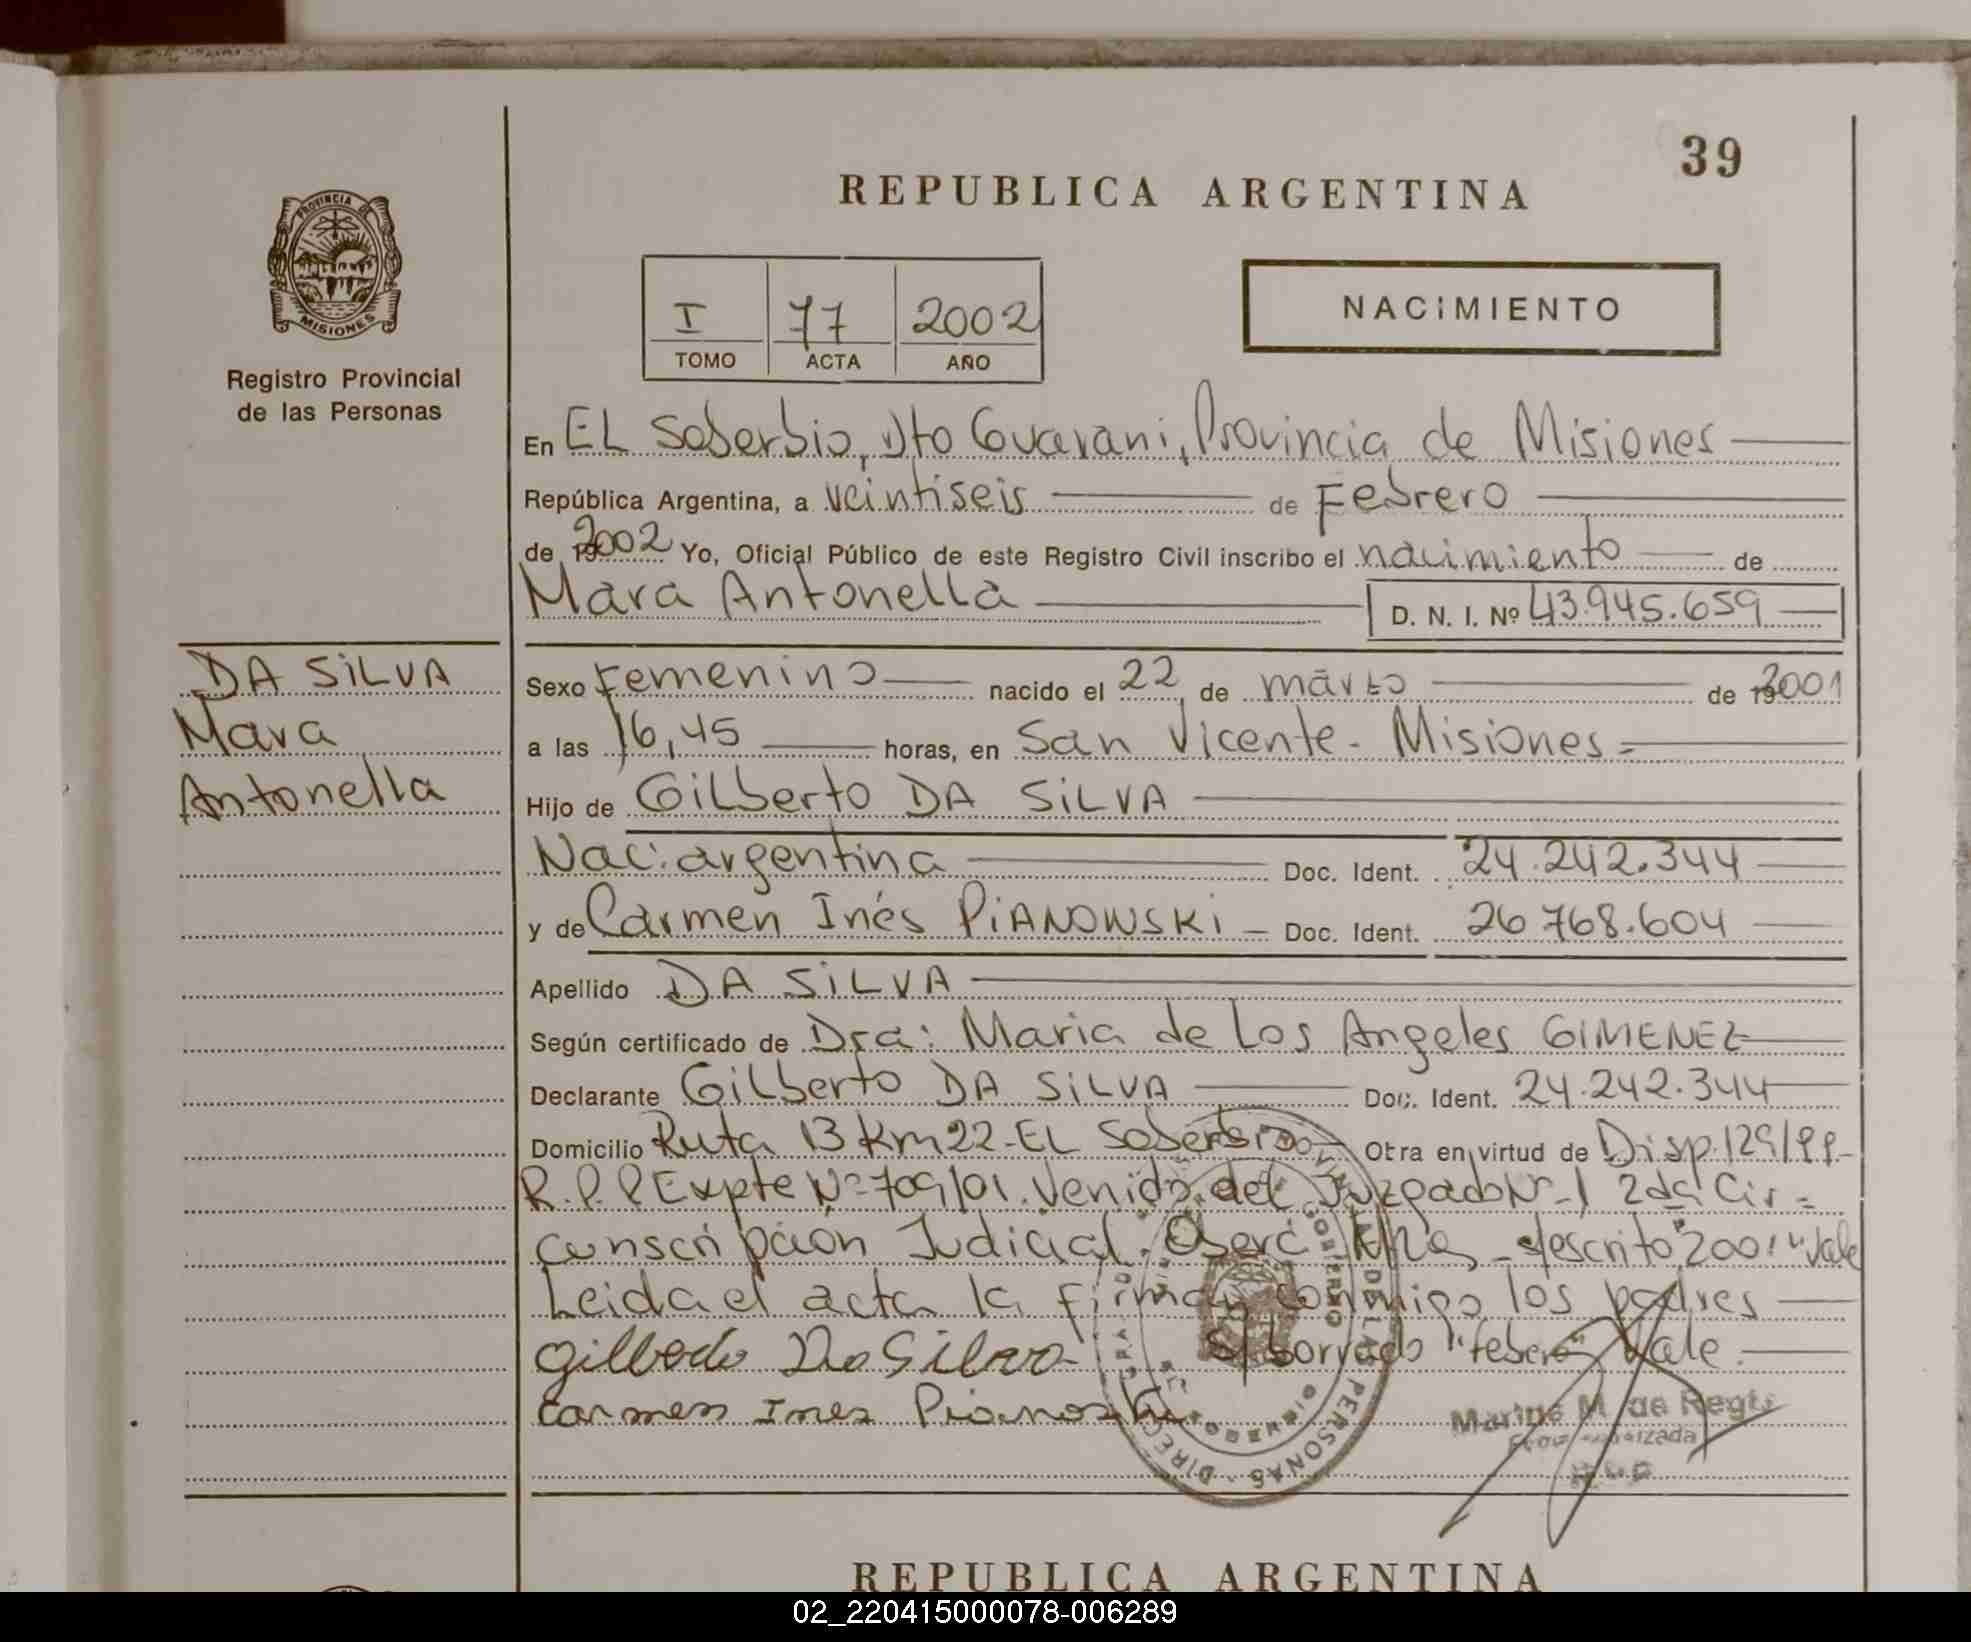 39
REPUBLICA ARGENTINA
PROVINCIA DE
MISIONES
Registro Provincial
de las Personas
I 77 2002
TOMO ACTA AÑO
NACIMIENTO
En EL Soberbio, Dto Guarani, Provincia de Misiones
República Argentina, a veintiseis de Febrero
de 2002 Yo, Oficial Público de este Registro Civil inscribo el nacimiento de
Mara Antonella D. N. I. Nº 43.945.659
DA SILVA
Mara
Antonella
Sexo Femenino nacido el 22 de marzo de 2001
a las 16,45 horas, en San Vicente - Misiones
Hijo de Gilberto DA SILVA
Nac: argentina Doc. Ident. 24.242.344
y de Carmen Inés PIANOWSKI Doc. Ident. 26.768.604
Apellido DA SILVA
Según certificado de Dra: Maria de Los Angeles GIMENEZ
Declarante Gilberto DA SILVA Doc. Ident. 24.242.344
Domicilio Ruta 13 Km 22 - EL Soberbio Otra en virtud de Disp. 129/99-
R.P.P Expte Nº 709/01. Venido del Juzgado Nº 1 2da Cir-
cunscripción Judicial. s/escrito "2001" Vale
Leida el acta la firman conmigo los padres
Gilberto Da Silva s/borrado "febero" Vale.
Carmen Ines Pianoski
Marina M. de Regis
REPUBLICA ARGENTINA
02_220415000078-006289